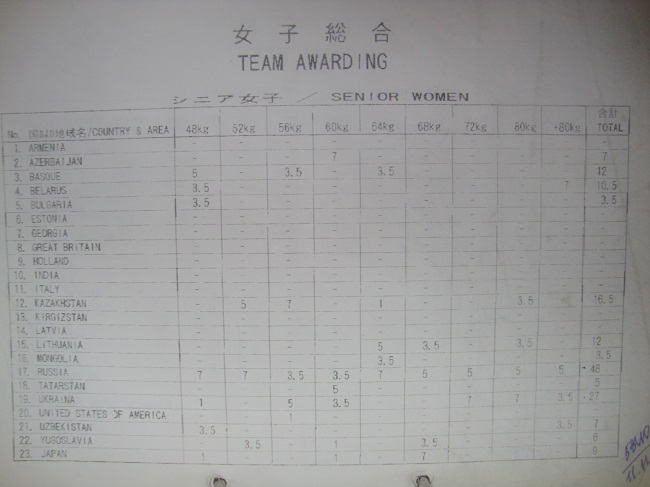 女子総合
TEAM AWARDING
シニア女子 / SENIOR WOMEN
合計
No. 国または地域名/COUNTRY & AREA 48kg 52kg 56kg 60kg 64kg 68kg 72kg 80kg +80kg TOTAL
1. ARMENIA - - - - - - - - - -
2. AZERBAIJAN - - - 7 - - - - - 7
3. BASQUE 5 - 3.5 - 3.5 - - - - 12
4. BELARUS 3.5 - - - - - - - 7 10.5
5. BULGARIA 3.5 - - - - - - - - 3.5
6. ESTONIA - - - - - - - - - -
7. GEORGIA - - - - - - - - - -
8. GREAT BRITAIN - - - - - - - - - -
9. HOLLAND - - - - - - - - - -
10. INDIA - - - - - - - - - -
11. ITALY - - - - - - - - - -
12. KAZAKHSTAN - 5 7 - 1 - - 3.5 - 16.5
13. KIRGIZSTAN - - - - - - - - - -
14. LATVIA - - - - - - - - - -
15. LITHUANIA - - - - 5 3.5 - 3.5 - 12
16. MONGOLIA - - - - 3.5 - - - - 3.5
17. RUSSIA 7 7 3.5 3.5 7 5 5 5 5 48
18. TATARSTAN - - - 5 - - - - - 5
19. UKRAINA 1 - 5 3.5 - - 7 7 3.5 27
20. UNITED STATES OF AMERICA - - 1 - - - - - -
21. UZBEKISTAN 3.5 - - - - - - - 3.5 7
22. YUGOSLAVIA - 3.5 - 1 - 3.5 - - - 8
23. JAPAN 1 - - 1 - 7 - - - 9